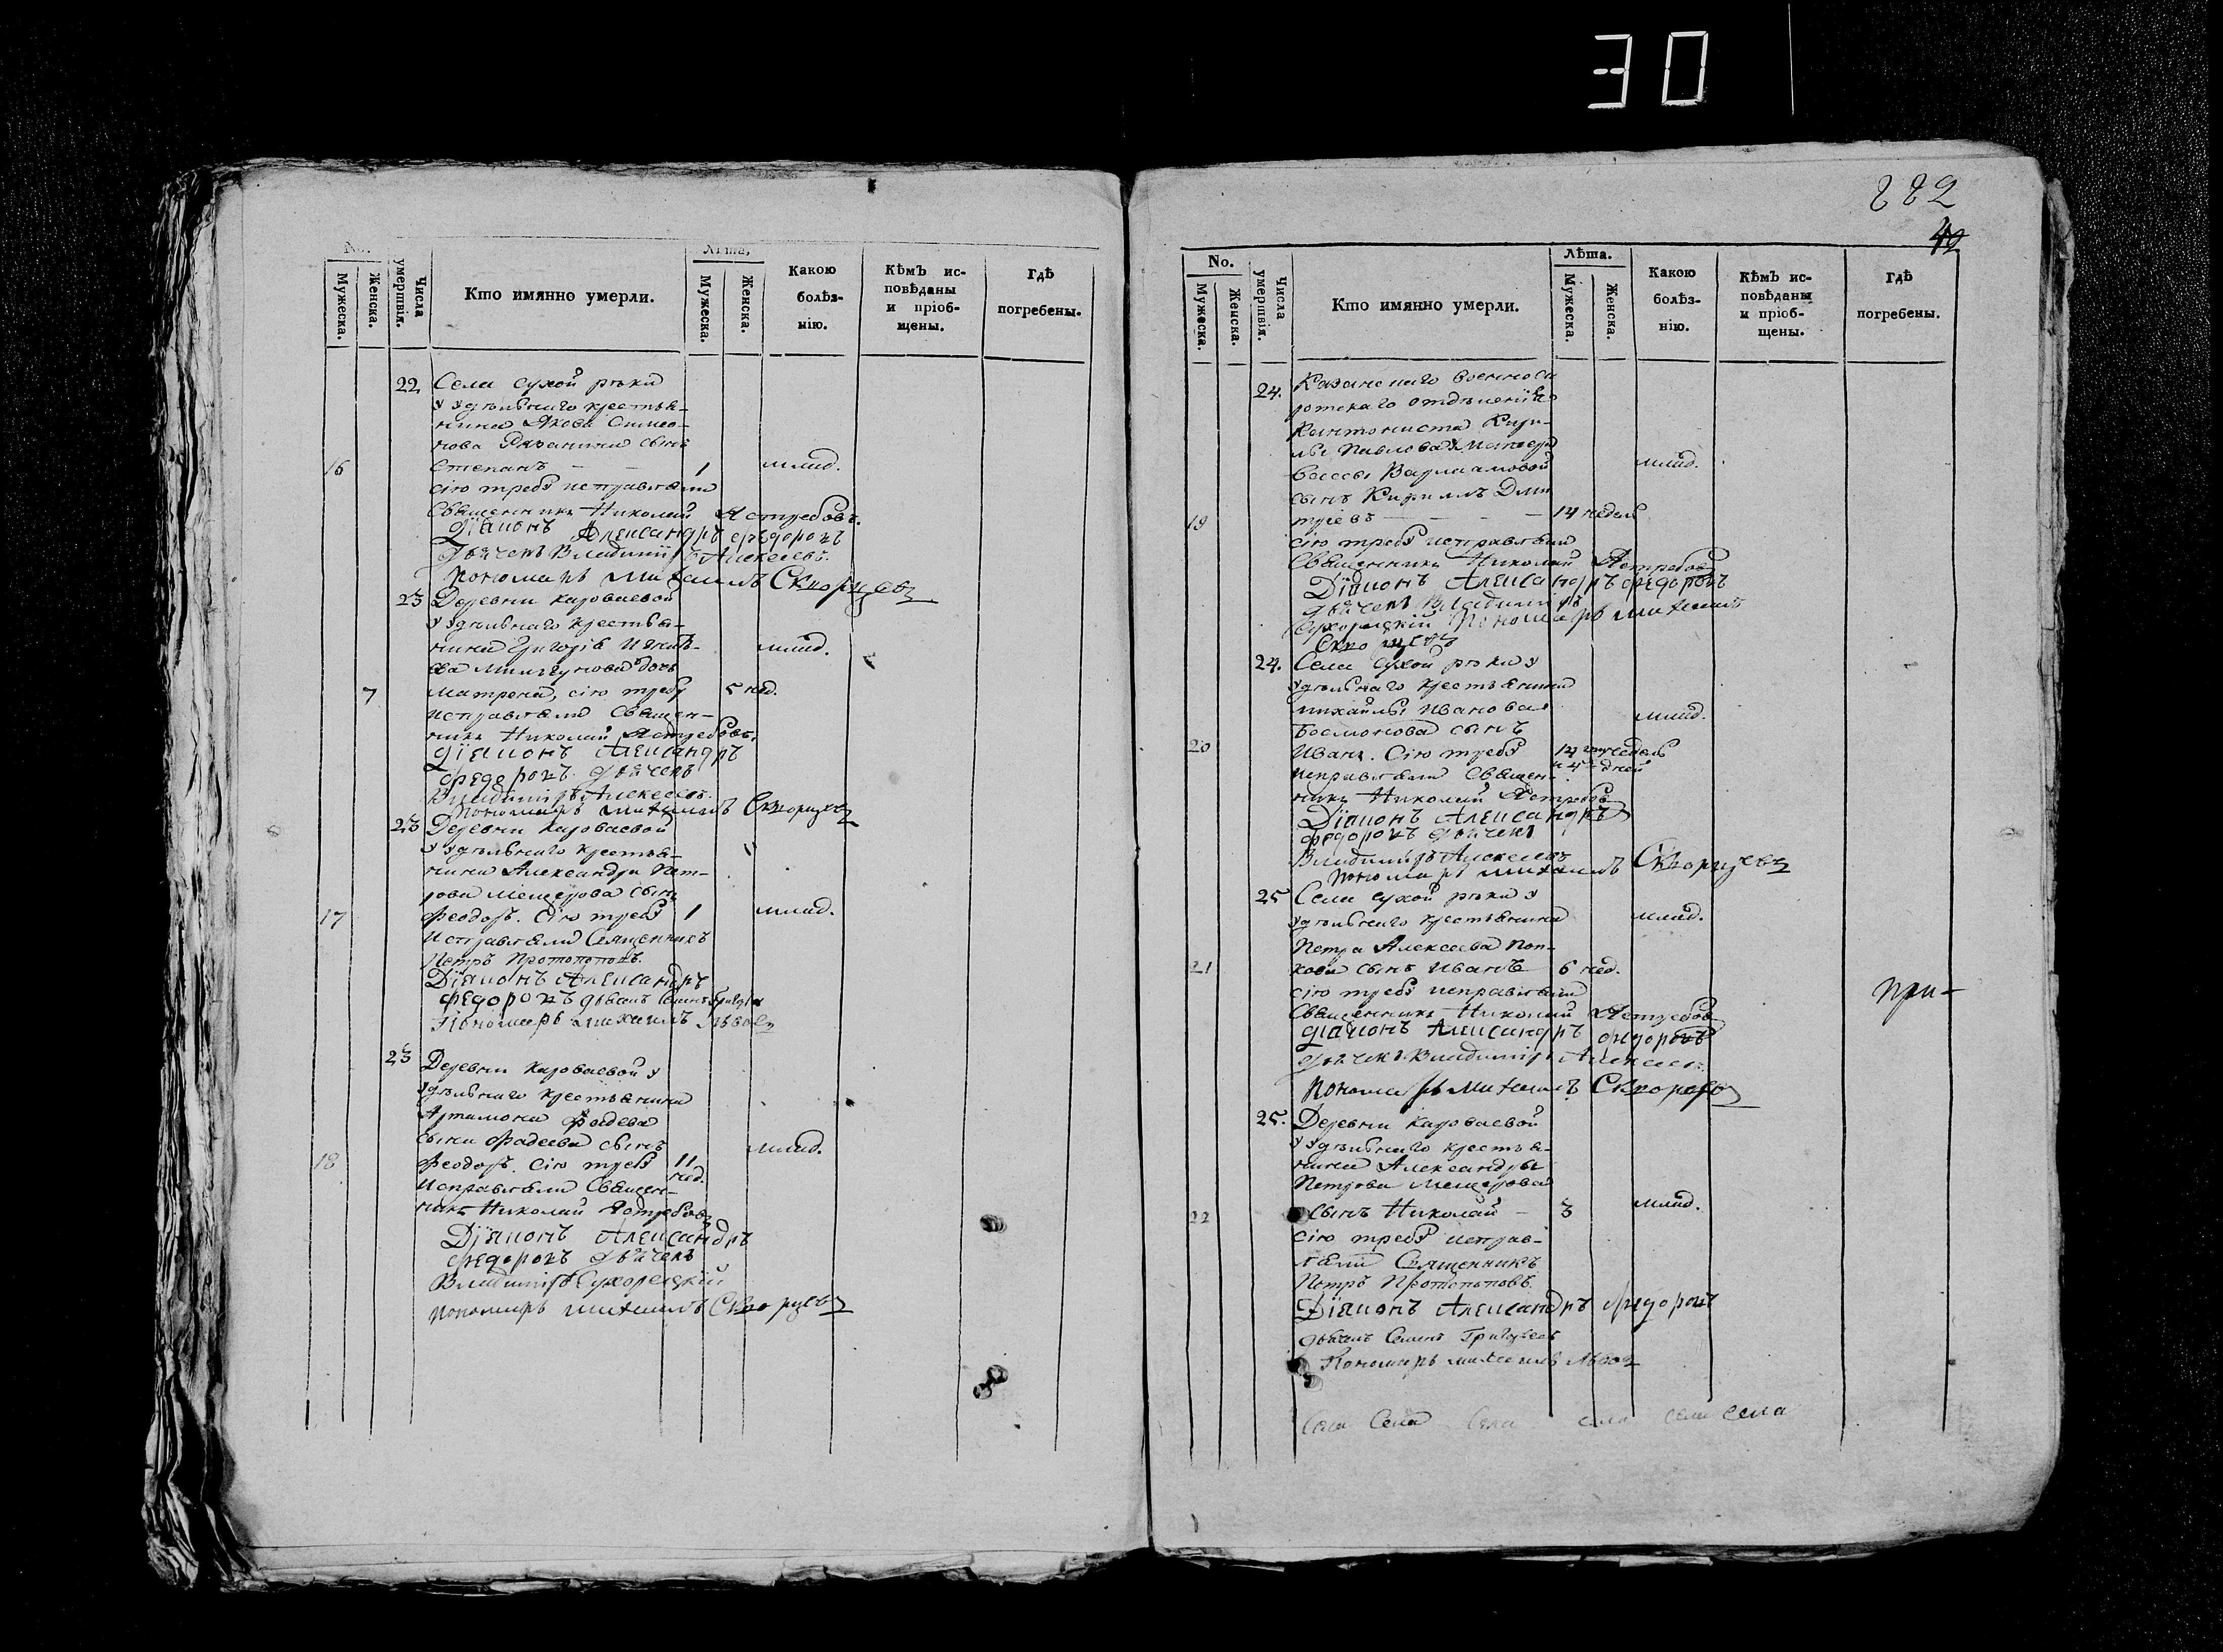 30
No.
Мужеска.
Женска.
Числа умертвія.
Кто имянно умерли.
Лѣта.
Мужеска.
Женска.
Какою болѣз-
нію.
Кѣмъ ис-
повѣданы
и пріоб-
щены.
Гдѣ
погребены.
22 Села сухой рѣки
удѣльнаго крестья-
нина Якова Симео-
нова Рязанина сынъ
16 Степанъ — — 1 млад.
сію требу исправляли
Священникъ Николай Ястребовъ.
Діаконъ Александръ Ѳедоровъ
Дьячекъ Владимиръ Алексеевъ.
Пономарь Михаилъ Скворцевъ
23 Деревни Караваевой
удѣльнаго крестья-
нина Григорія
дочь млад.
7 Матрена, сію требу 5 нед.
исправляли Священ-
никъ Николай Ястребовъ.
Діаконъ Александръ
Ѳедоровъ. Дьячекъ
Владимиръ Алексеевъ.
Пономарь Михаилъ Скворцевъ
23 Деревни Караваевой
удѣльнаго крестья-
нина Александра Пет-
рова Мещерова сынъ
17 Ѳеодоръ. Сію требу 1 млад.
исправляли Священникъ
Петръ Протопоповъ.
Діаконъ Александръ
Ѳедоровъ дьякъ Семенъ Григорьев
Пономарь Михаилъ Львовъ
23 Деревни Караваевой
удѣльнаго крестьянина
Артамона Фадѣева
сына Фадеева сынъ млад.
18 Ѳеодоръ. Сію требу 11 нед.
исправляли Священ-
никъ Николай Ястребовъ
Діаконъ Александръ
Ѳедоровъ Дьячекъ
Владимиръ Сухорецкій
Пономарь Михаилъ Скворцевъ
222
42
No.
Мужеска.
Женска.
Числа умертвія.
Кто имянно умерли.
Лѣта.
Мужеска.
Женска.
Какою
болѣз-
нію.
Кѣмъ ис-
повѣданы
и пріоб-
щены.
Гдѣ
погребены.
24. Казанскаго военноси
ротскаго отдѣленія
Кантониста Кири-
лы Павлова
Варлаамовой млад.
сынъ Кириллъ Дми
19 тріевъ — — — 14 недель
сію требу исправляли
Священникъ Николай Ястребовъ
Діаконъ Александръ Ѳедоровъ
Дьячекъ Владимиръ
Сухорецкій Пономарь Михаилъ
Скворцевъ
24. Села сухой рѣки
удѣльнаго крестьянина
Михайлы Иванова млад.
сынъ
20 Иванъ. Сію требу 14 недель
исправляли Священ- и 4 дней
никъ Николай Ястребовъ
Діаконъ Александръ
Ѳедоровъ Дьячекъ
Владимиръ Алексеевъ
Пономарь Михаилъ Скворцевъ
25 Села сухой рѣки
удѣльнаго крестьянина млад.
Петра Алексеева Поп-
21 кова сынъ Иванъ 6 нед.
сію требу исправляли
Священникъ Николай Ястребовъ
Діаконъ Александръ Ѳедоровъ
Дьячекъ Владимиръ Алексеевъ.
Пономарь Михаилъ Скворцевъ
при-
25. Деревни Караваевой
удѣльнаго крестья-
нина Александры
Петрова Мещерова
22 сынъ Николай — 3 млад.
сію требу исправ-
ляли Священникъ
Петръ Протопоповъ.
Діаконъ Александръ Ѳедоровъ
дьякъ Семенъ Григорьевъ
Пономарь Михаилъ Львовъ
Села Села Села села села села